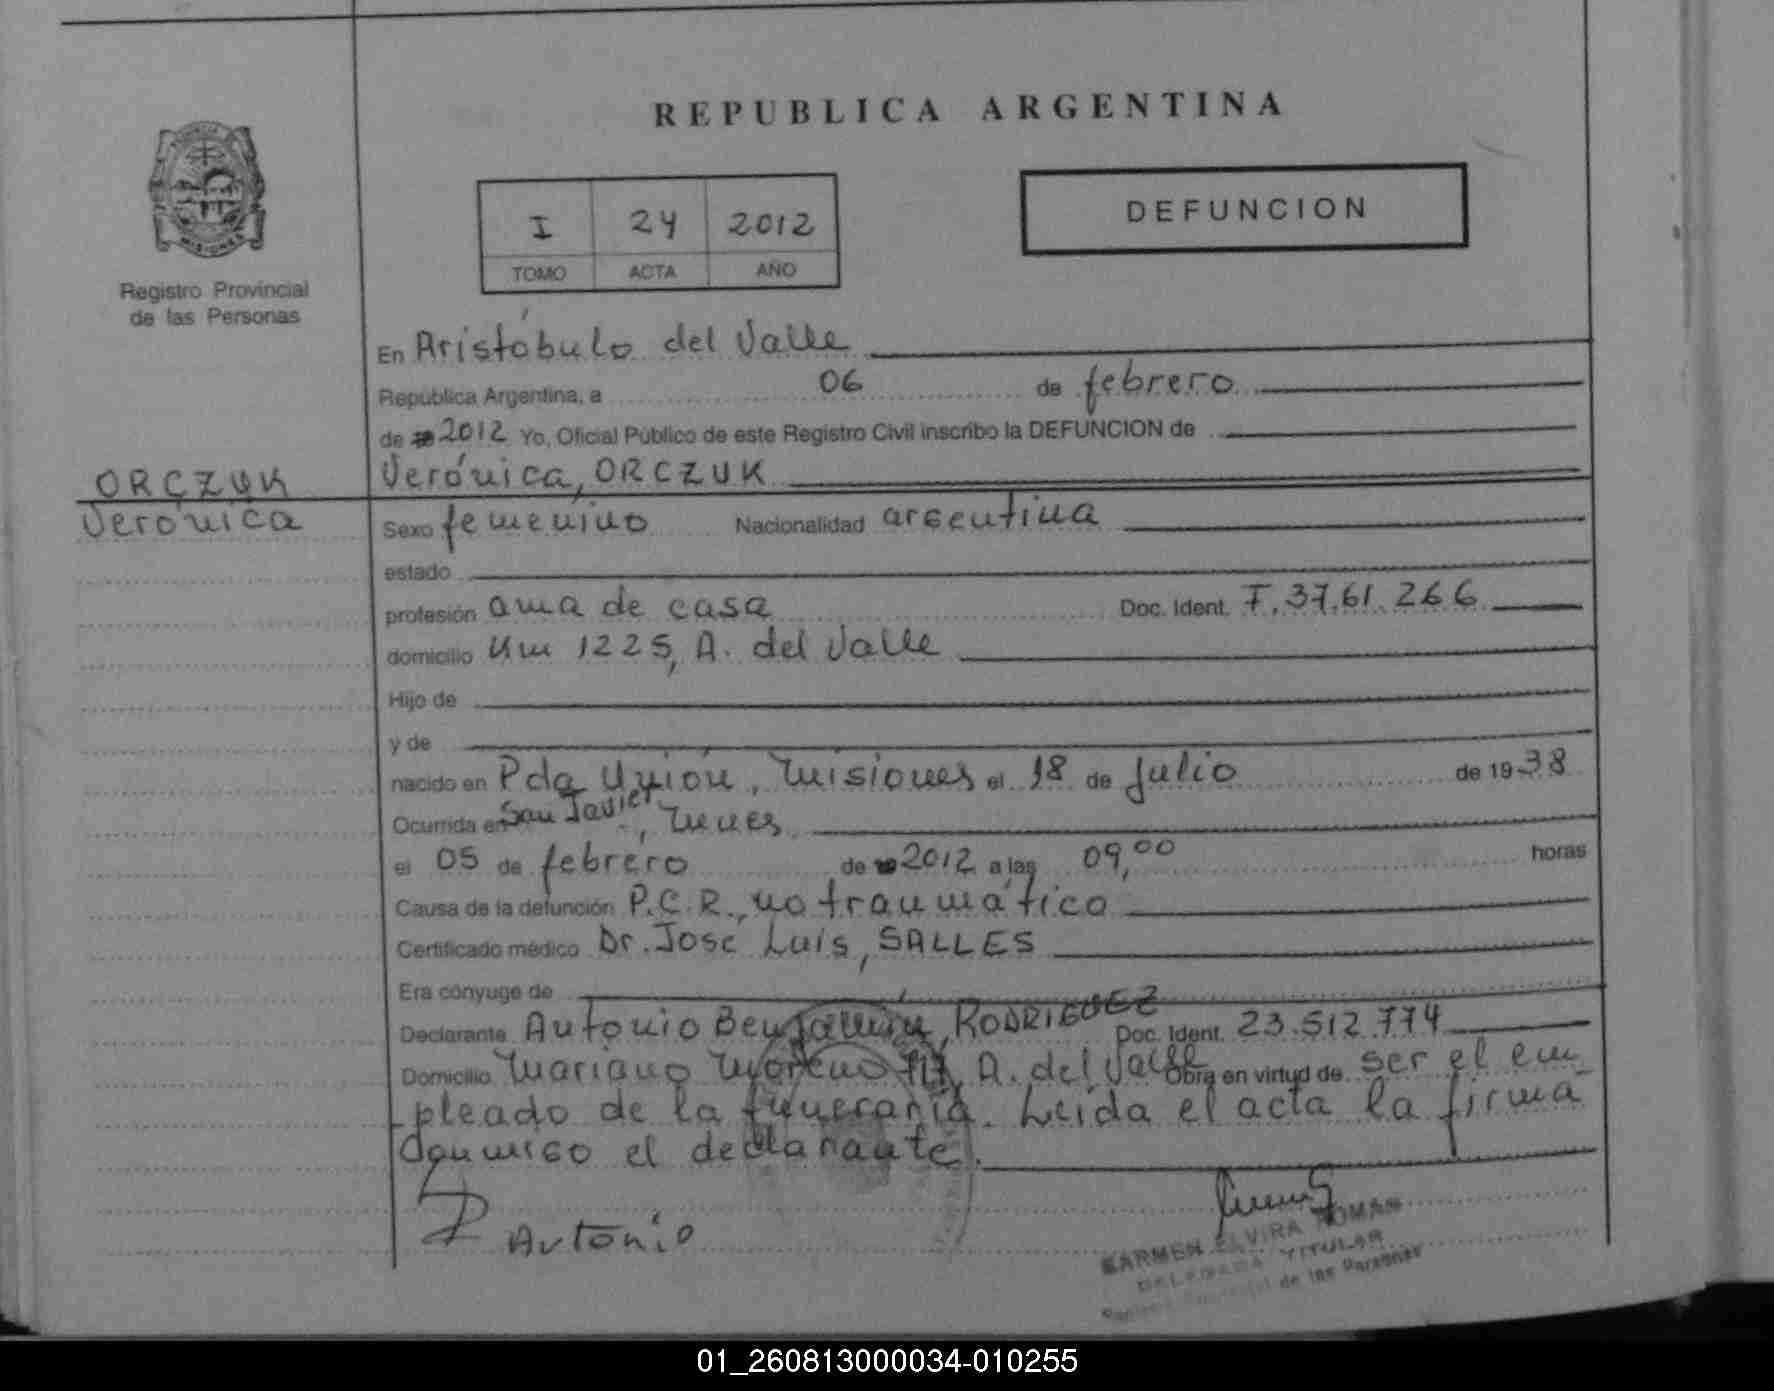 REPUBLICA ARGENTINA
DEFUNCION
I 24 2012
TOMO ACTA AÑO
Registro Provincial
de las Personas
MISIONES
En Aristóbulo del Valle
República Argentina, a 06 de febrero
de 2012 Yo, Oficial Público de este Registro Civil inscribo la DEFUNCION de
Verónica, ORCZUK
ORCZUK
Verónica
Sexo femenino Nacionalidad argentina
estado
profesión ama de casa Doc. Ident. F. 37.61.266
domicilio Km 1225, A. del Valle
Hijo de
y de
nacido en Pda Unión, Misiones el 18 de julio de 1938
Ocurrida en San Javier, Mnes
el 05 de febrero de 2012 a las 09,00 horas
Causa de la defunción P.C.R., no traumático
Certificado médico Dr. José Luis, SALLES
Era cónyuge de
Declarante Antonio Benjamín, RODRIGUEZ Doc. Ident. 23.512.774
Domicilio Mariano Moreno A. del Valle Obra en virtud de ser el em
pleado de la funeraria. Leida el acta la firma
conmigo el declarante.
Antonio
KARMEN ELVIRA ROMAN
DELEGADA TITULAR
de las Personas
01_260813000034-010255